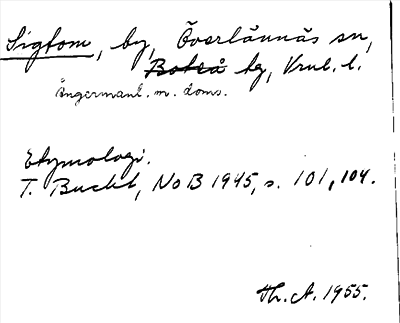 Sigtom, by, Överlännäs sn,
Boteå tg, Vrnl. l.
Ångermanl. m. doms.
Etymologi.
T. Bucht, NoB 1945, s. 101, 104.
Th. A. 1955.